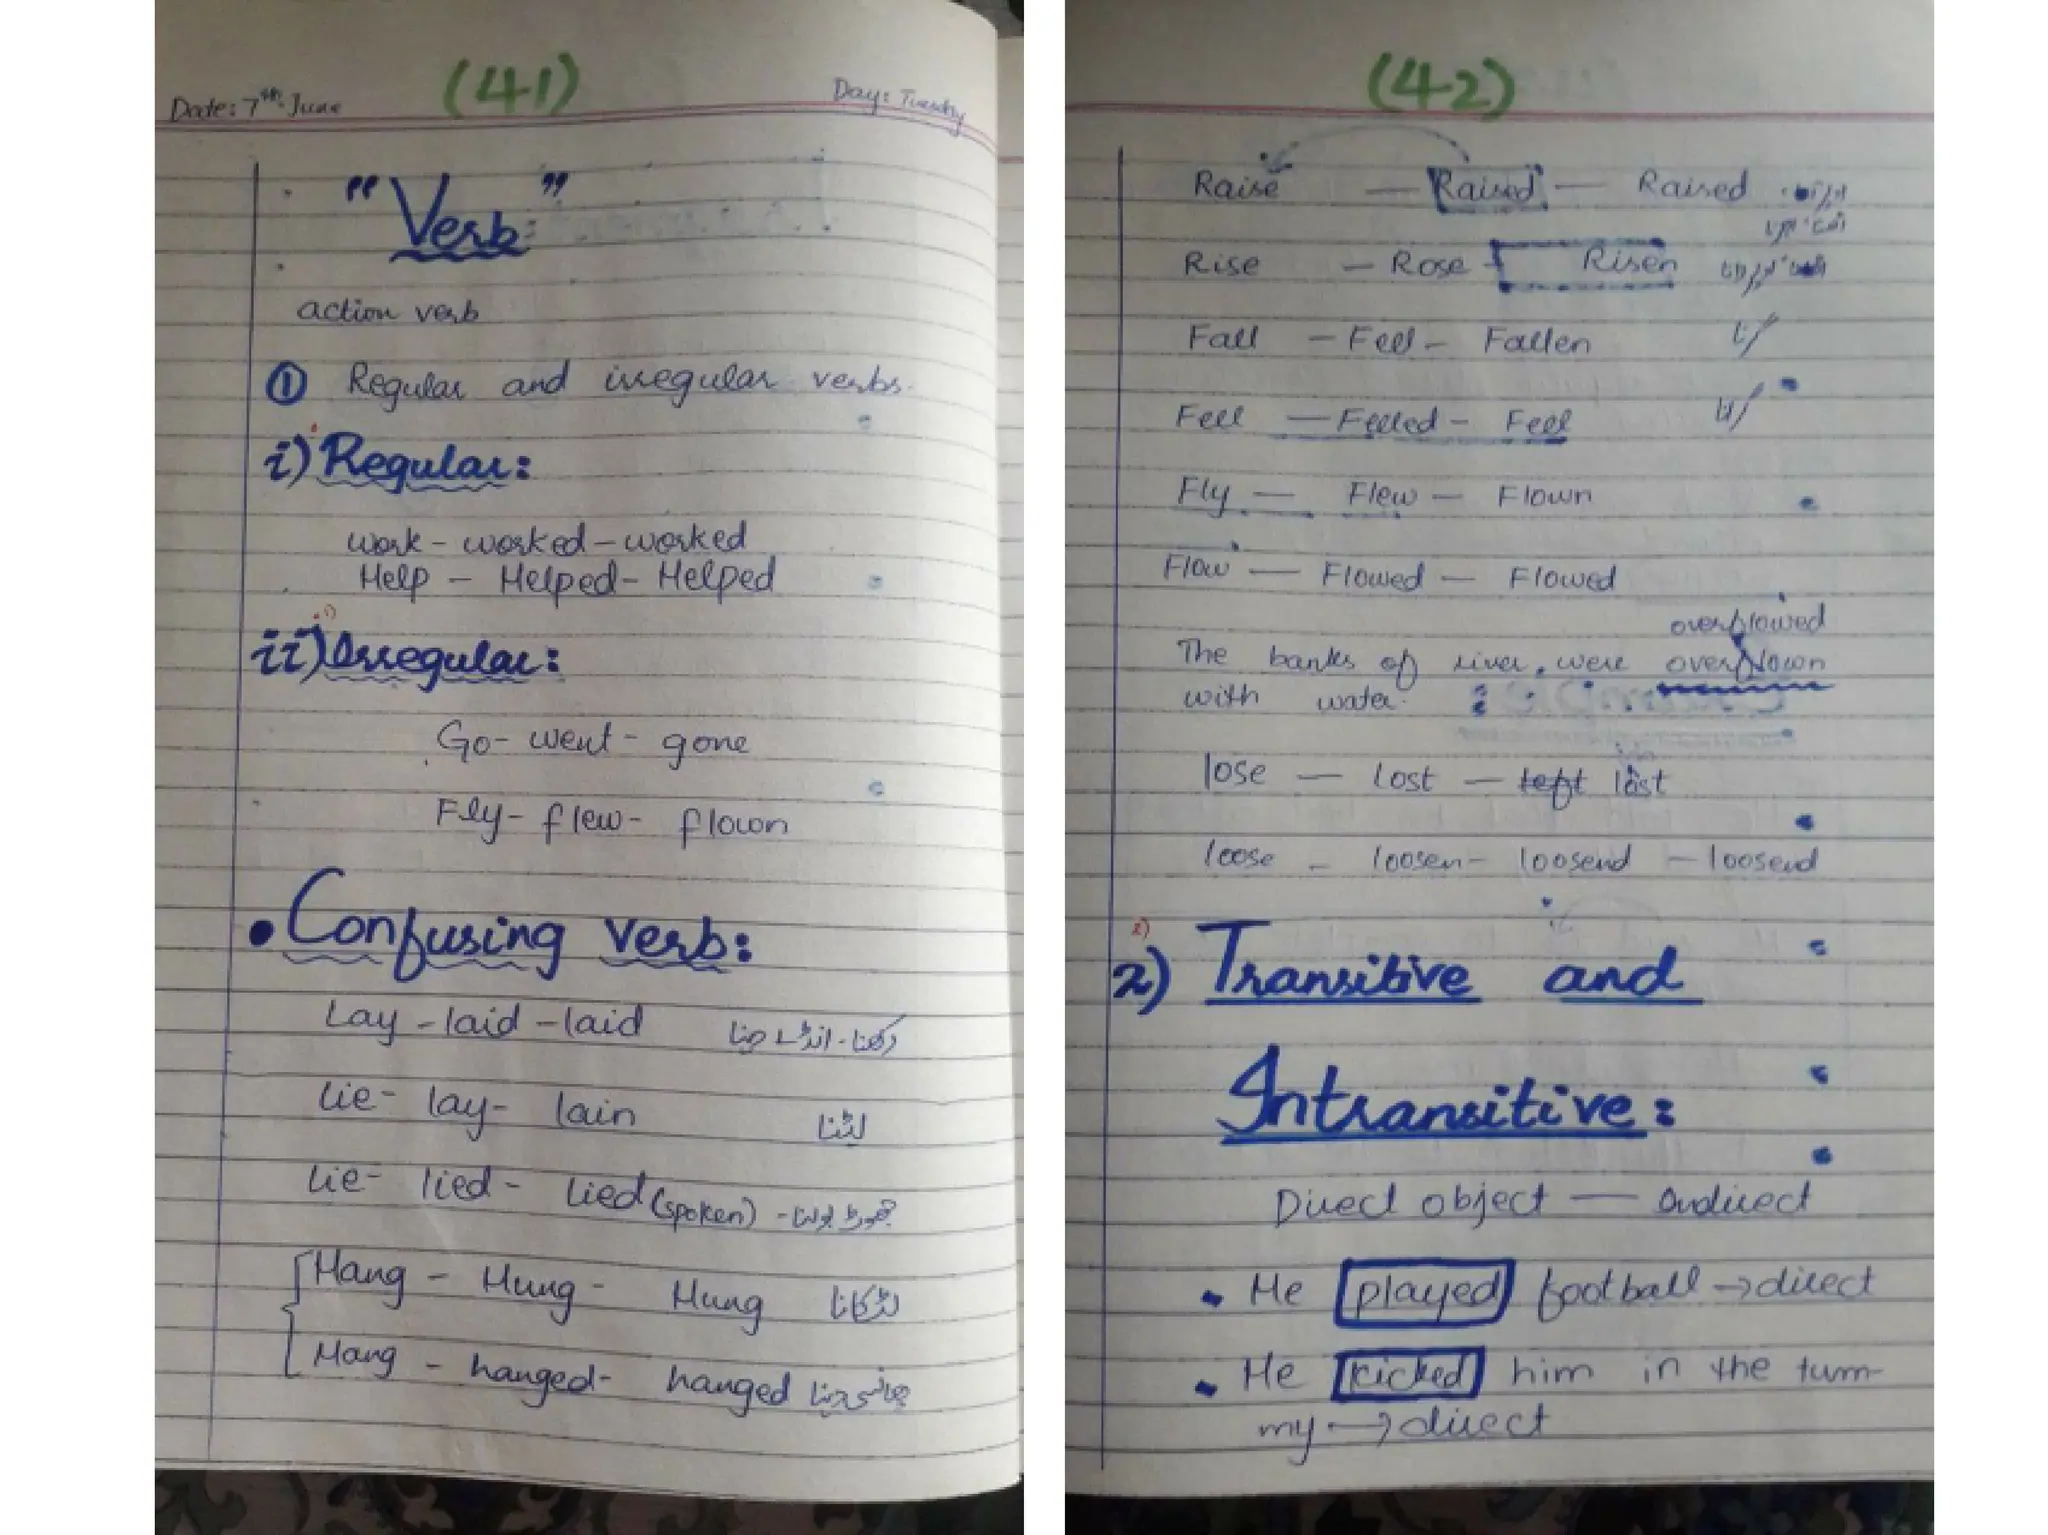 Date: 7th June (41) Day: Tuesday
"Verb:"
action verb
① Regular and irregular verbs.
i) Regular:
work - worked - worked
Help - Helped - Helped
ii) Irregular:
Go - went - gone
Fly - flew - flown
• Confusing Verb:
Lay - laid - laid رکھنا - انڈے دینا
Lie - lay - lain لیٹنا
Lie - lied - Lied (spoken) - جھوٹ بولنا
Hang - Hung - Hung لٹکانا
Hang - hanged - hanged پھانسی دینا
(42)
Raise — Raised — Raised
Rise — Rose - Risen
Fall - Fell - Fallen گرنا
Fell — Felled - Fell گرانا
Fly — Flew — Flown
Flow — Flowed — Flowed
overflowed
The banks of river were overflown
with water.
lose — lost — left lost
loose - loosen - loosend - loosend
2)
2) Transitive and
Intransitive:
Direct object — Indirect
• He played football → direct
• He kicked him in the tum-
my → direct